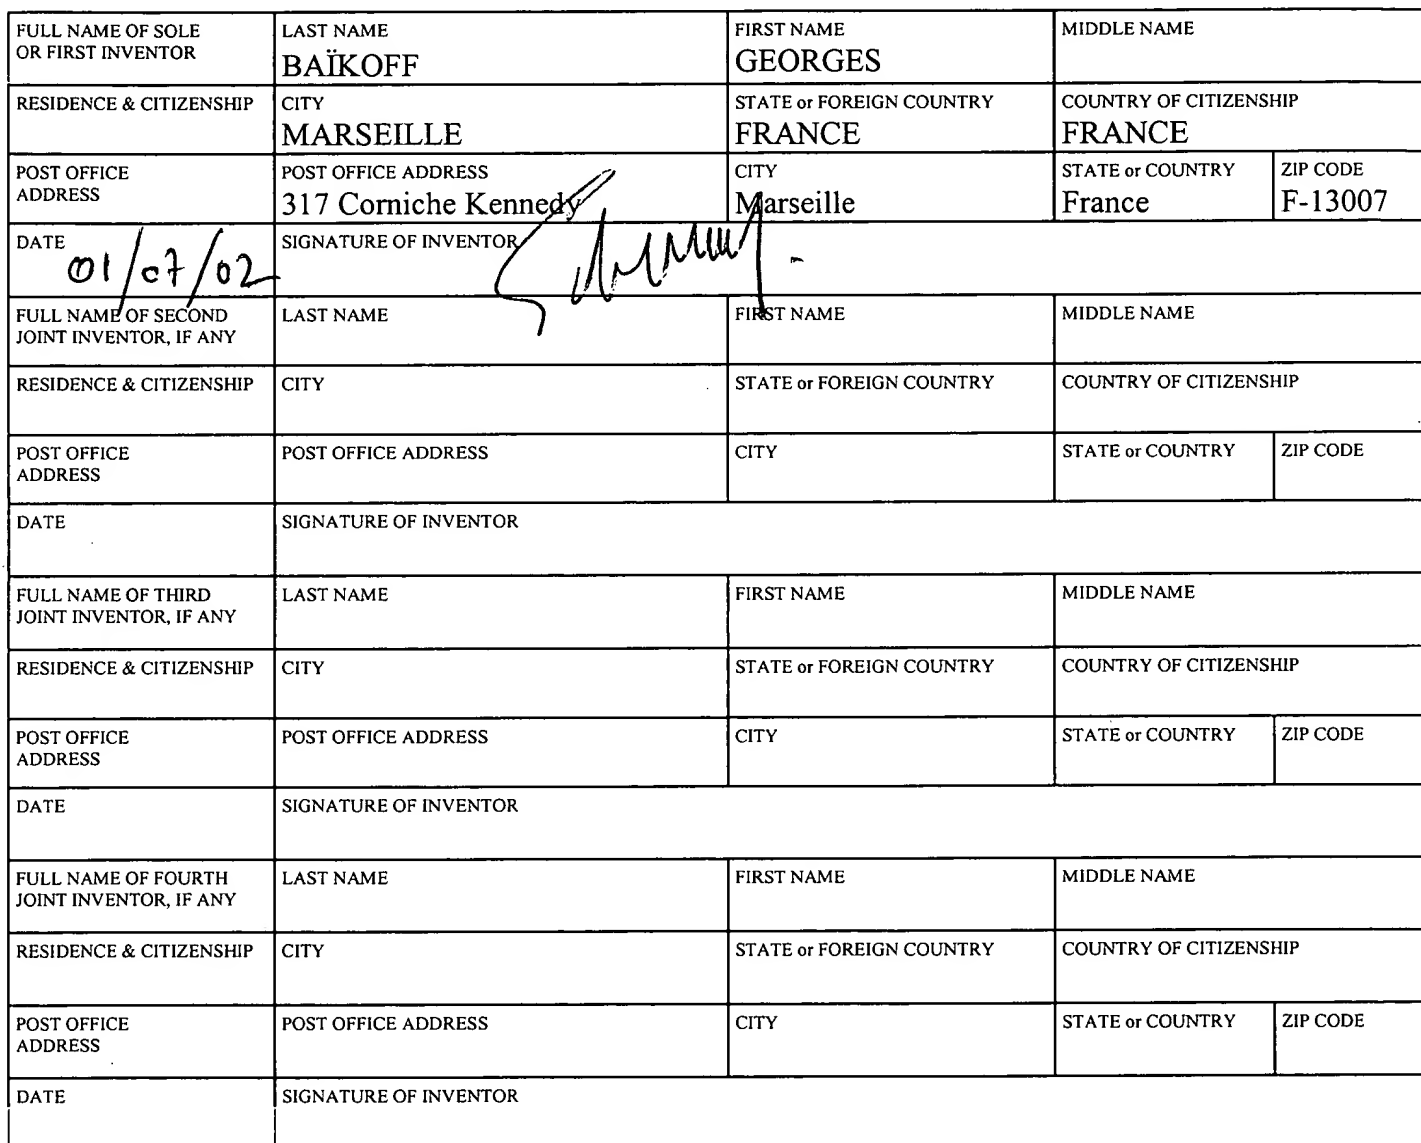 FULL NAME OF SOLE OR FIRST INVENTOR LAST NAME BAÏKOFF FIRST NAME GEORGES MIDDLE NAME
RESIDENCE & CITIZENSHIP CITY MARSEILLE STATE or FOREIGN COUNTRY FRANCE COUNTRY OF CITIZENSHIP FRANCE
POST OFFICE ADDRESS POST OFFICE ADDRESS 317 Corniche Kennedy CITY Marseille STATE or COUNTRY France ZIP CODE F-13007
DATE 01/07/02 SIGNATURE OF INVENTOR
FULL NAME OF SECOND JOINT INVENTOR, IF ANY LAST NAME FIRST NAME MIDDLE NAME
RESIDENCE & CITIZENSHIP CITY STATE or FOREIGN COUNTRY COUNTRY OF CITIZENSHIP
POST OFFICE ADDRESS POST OFFICE ADDRESS CITY STATE or COUNTRY ZIP CODE
DATE SIGNATURE OF INVENTOR
FULL NAME OF THIRD JOINT INVENTOR, IF ANY LAST NAME FIRST NAME MIDDLE NAME
RESIDENCE & CITIZENSHIP CITY STATE or FOREIGN COUNTRY COUNTRY OF CITIZENSHIP
POST OFFICE ADDRESS POST OFFICE ADDRESS CITY STATE or COUNTRY ZIP CODE
DATE SIGNATURE OF INVENTOR
FULL NAME OF FOURTH JOINT INVENTOR, IF ANY LAST NAME FIRST NAME MIDDLE NAME
RESIDENCE & CITIZENSHIP CITY STATE or FOREIGN COUNTRY COUNTRY OF CITIZENSHIP
POST OFFICE ADDRESS POST OFFICE ADDRESS CITY STATE or COUNTRY ZIP CODE
DATE SIGNATURE OF INVENTOR